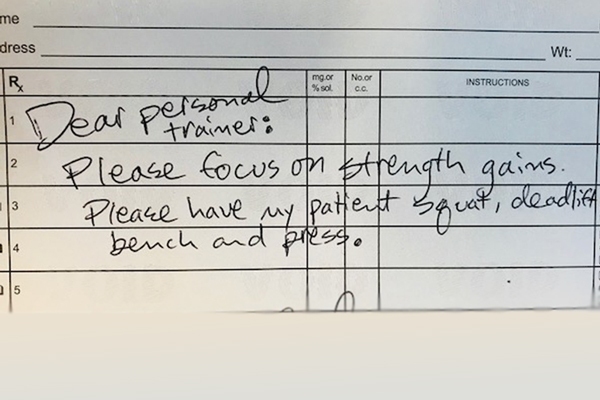 me
dress Wt:
Rx mg.or % sol. No.or c.c. INSTRUCTIONS
1 Dear personal
trainer:
2 Please focus on strength gains.
3 Please have my patient squat, deadlift
4 bench and press.
5